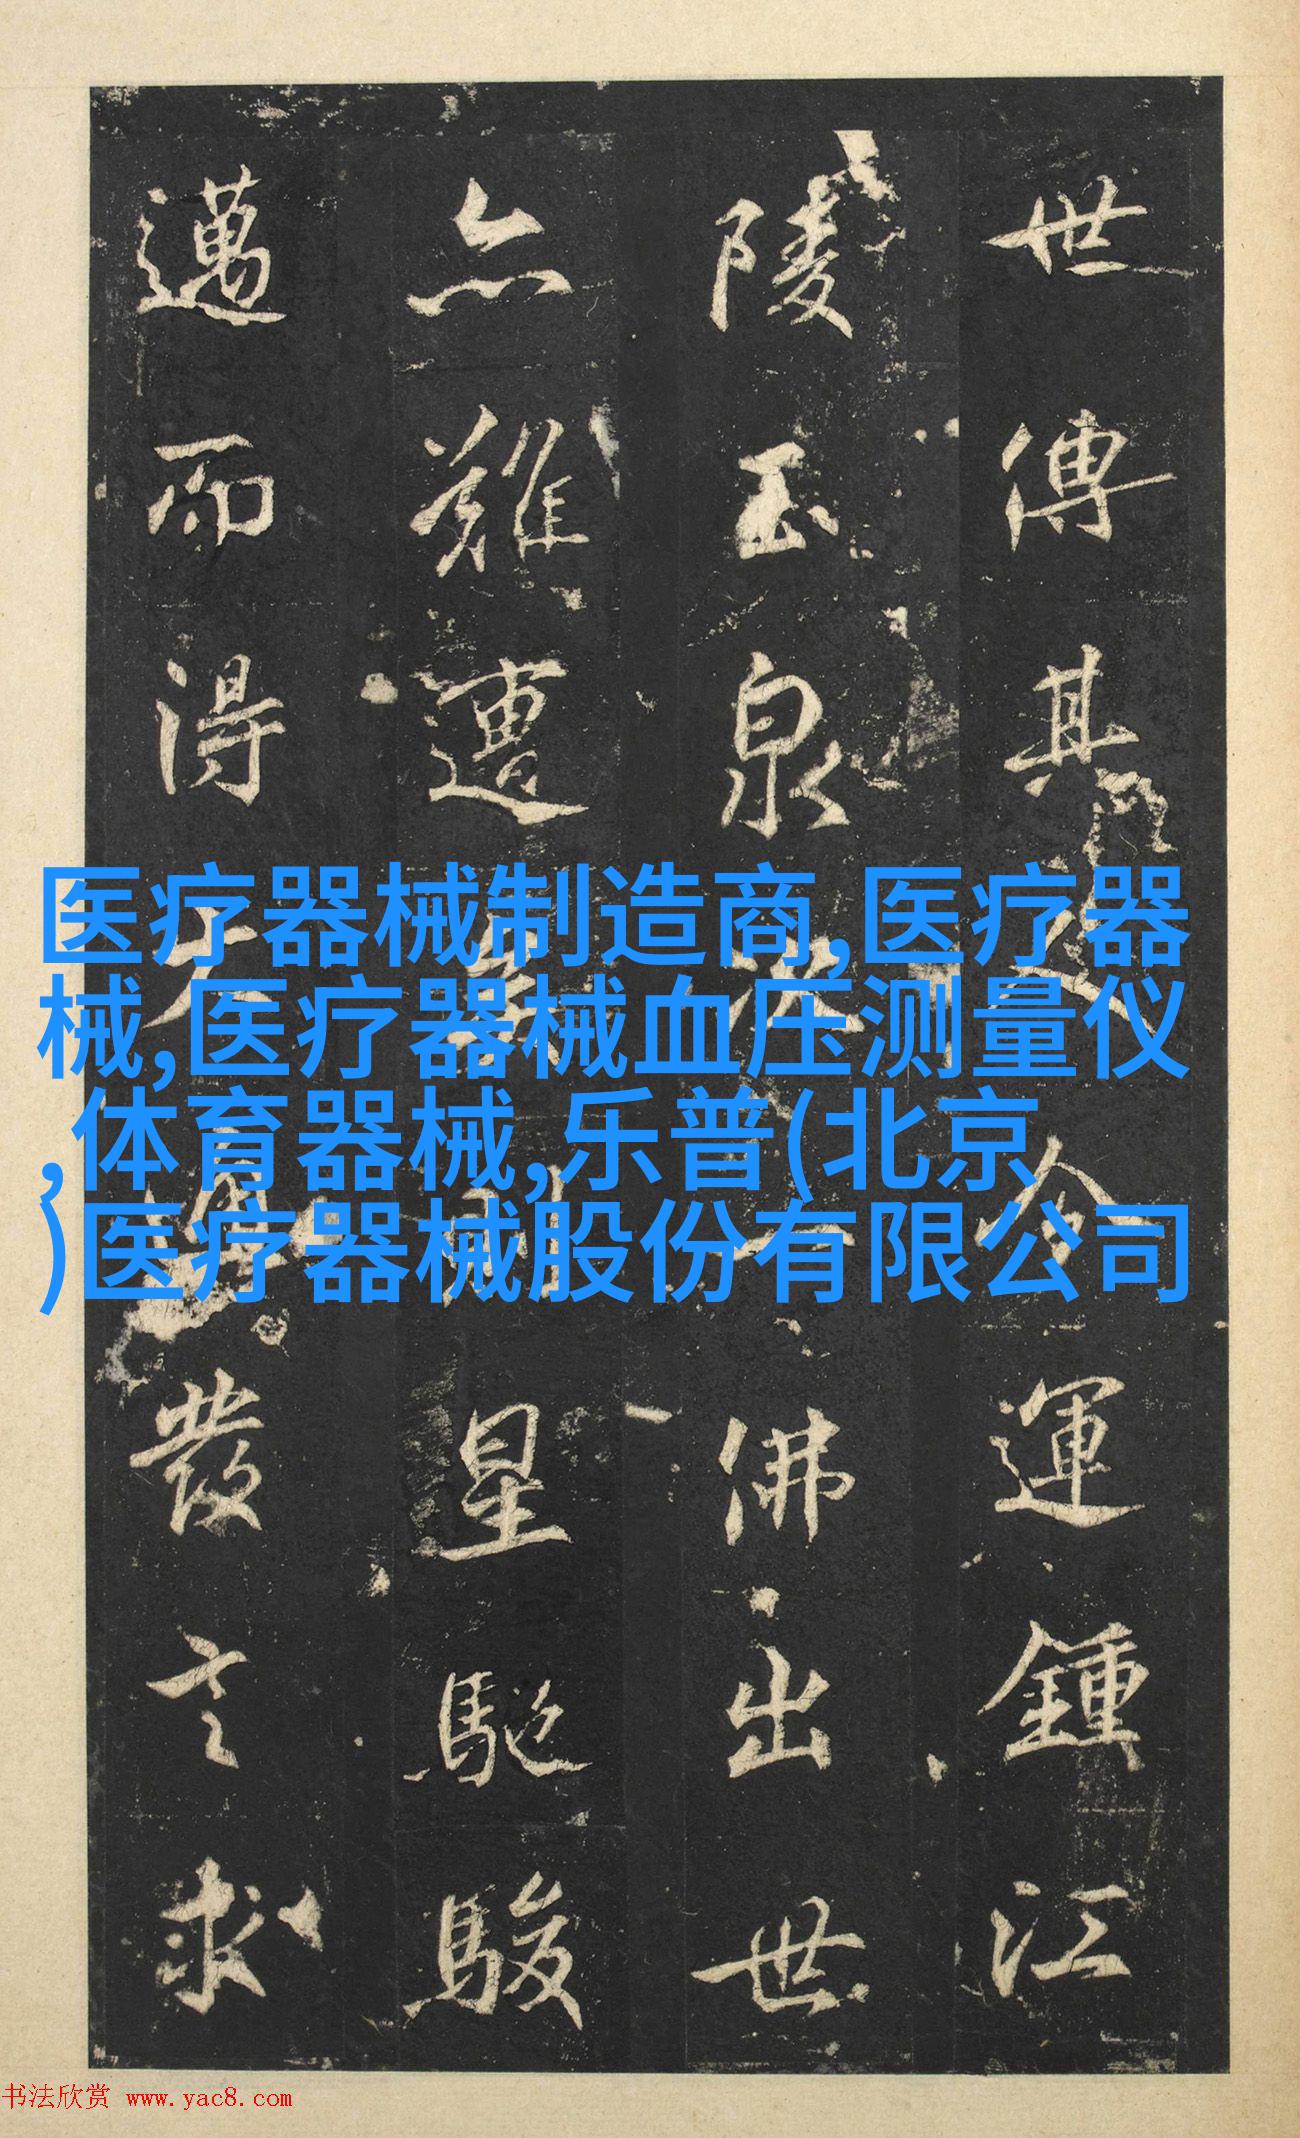 世傳其運鍾江
陵玉泉佛出世
難遭星馳駿
邁而得發言求
医疗器械制造商,医疗器
械,医疗器械血压测量仪
,体育器械,乐普(北京
)医疗器械股份有限公司
书法欣赏 www.yac8.com